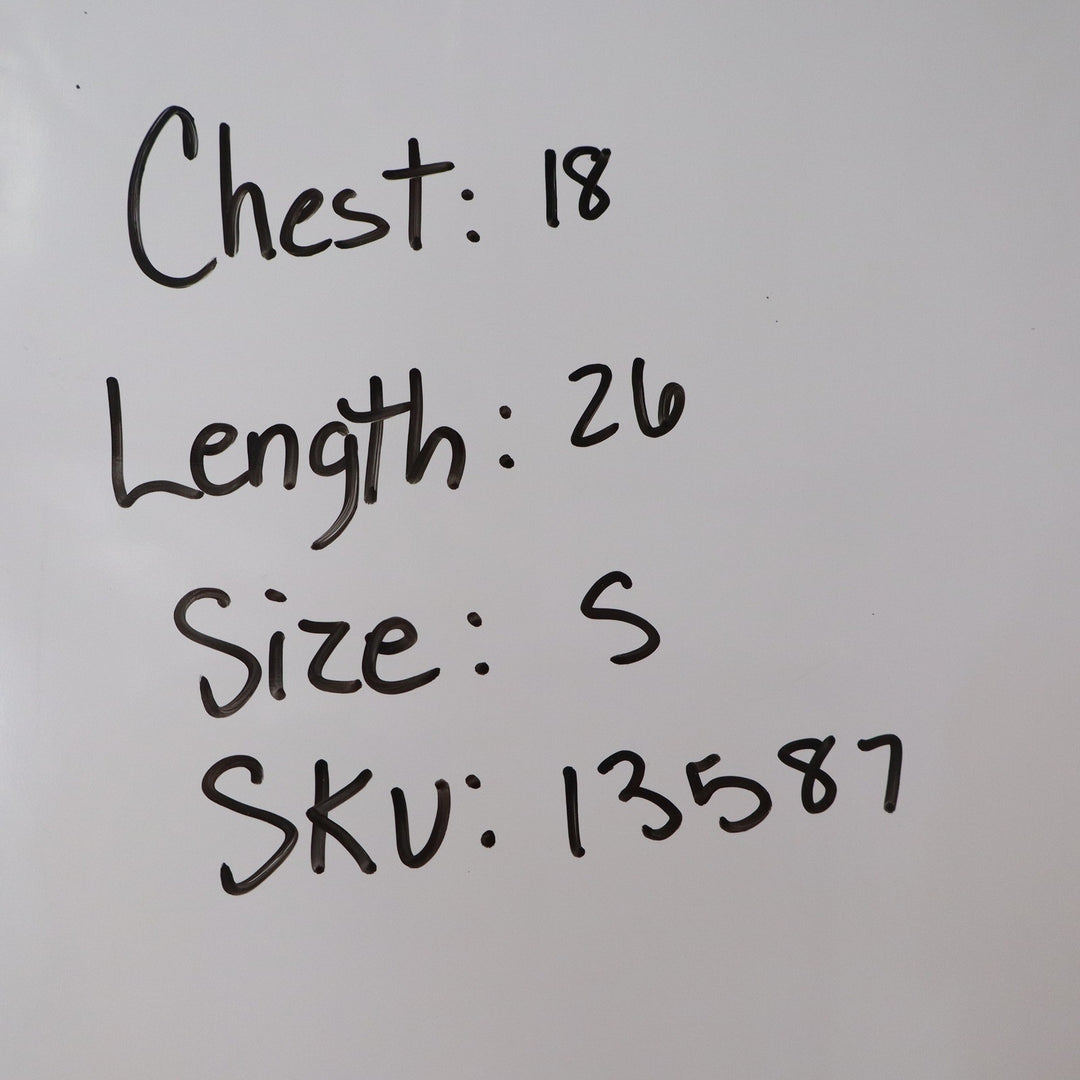 Chest: 18
Length: 26
Size: S
SKU: 13587